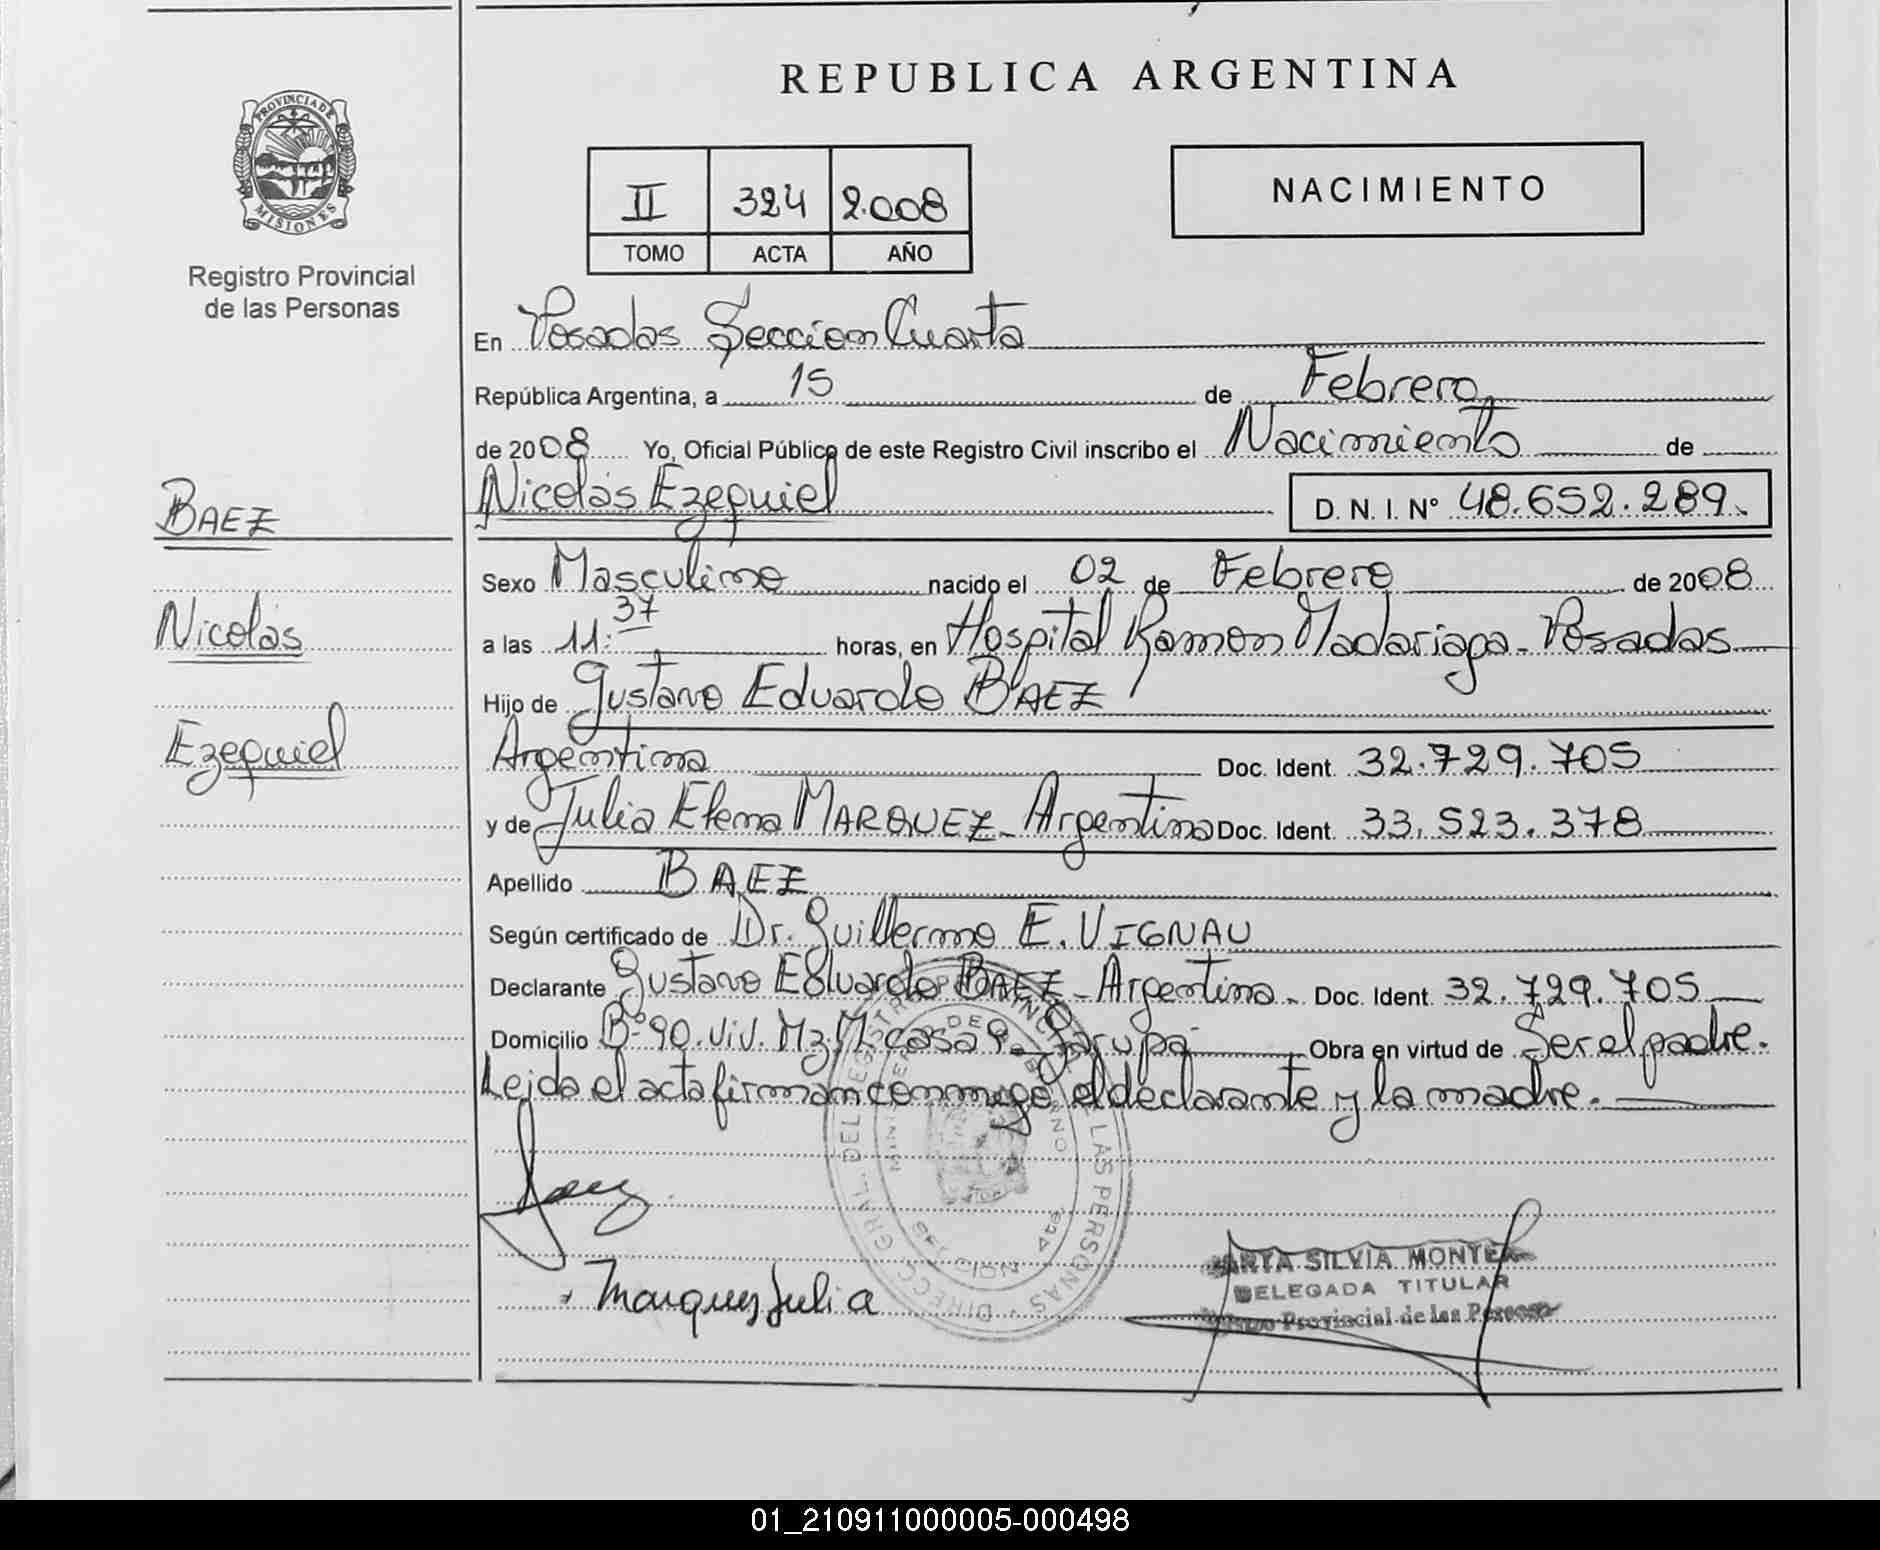 REPUBLICA ARGENTINA
PROVINCIA DE
MISIONES
Registro Provincial
de las Personas
II 324 2.008
TOMO ACTA AÑO
NACIMIENTO
En Posadas Seccion Cuarta
República Argentina, a 15 de Febrero
de 2008 Yo, Oficial Público de este Registro Civil inscribo el Nacimiento de
BAEZ
Nicolás
Ezequiel
Nicolás Ezequiel D. N. I. N° 48.652.289.
Sexo Masculino nacido el 02 de Febrero de 2008
a las 11:37 horas, en Hospital Ramon Madariaga - Posadas
Hijo de Gustavo Eduardo BAEZ
Argentina Doc. Ident. 32.729.705
y de Julia Elena MARQUEZ - Argentina Doc. Ident. 33.523.378
Apellido BAEZ
Según certificado de Dr. Guillermo E. VIGNAU
Declarante Gustavo Eduardo BAEZ - Argentina - Doc. Ident. 32.729.705
Domicilio B° 90. Viv. Mz M casa 9 - Garupá Obra en virtud de Ser el padre.
Leida el acta firman conmigo el declarante y la madre.
Marquez Julia
SILVIA
DELEGADA TITULAR
Provincial de las Personas
01_210911000005-000498